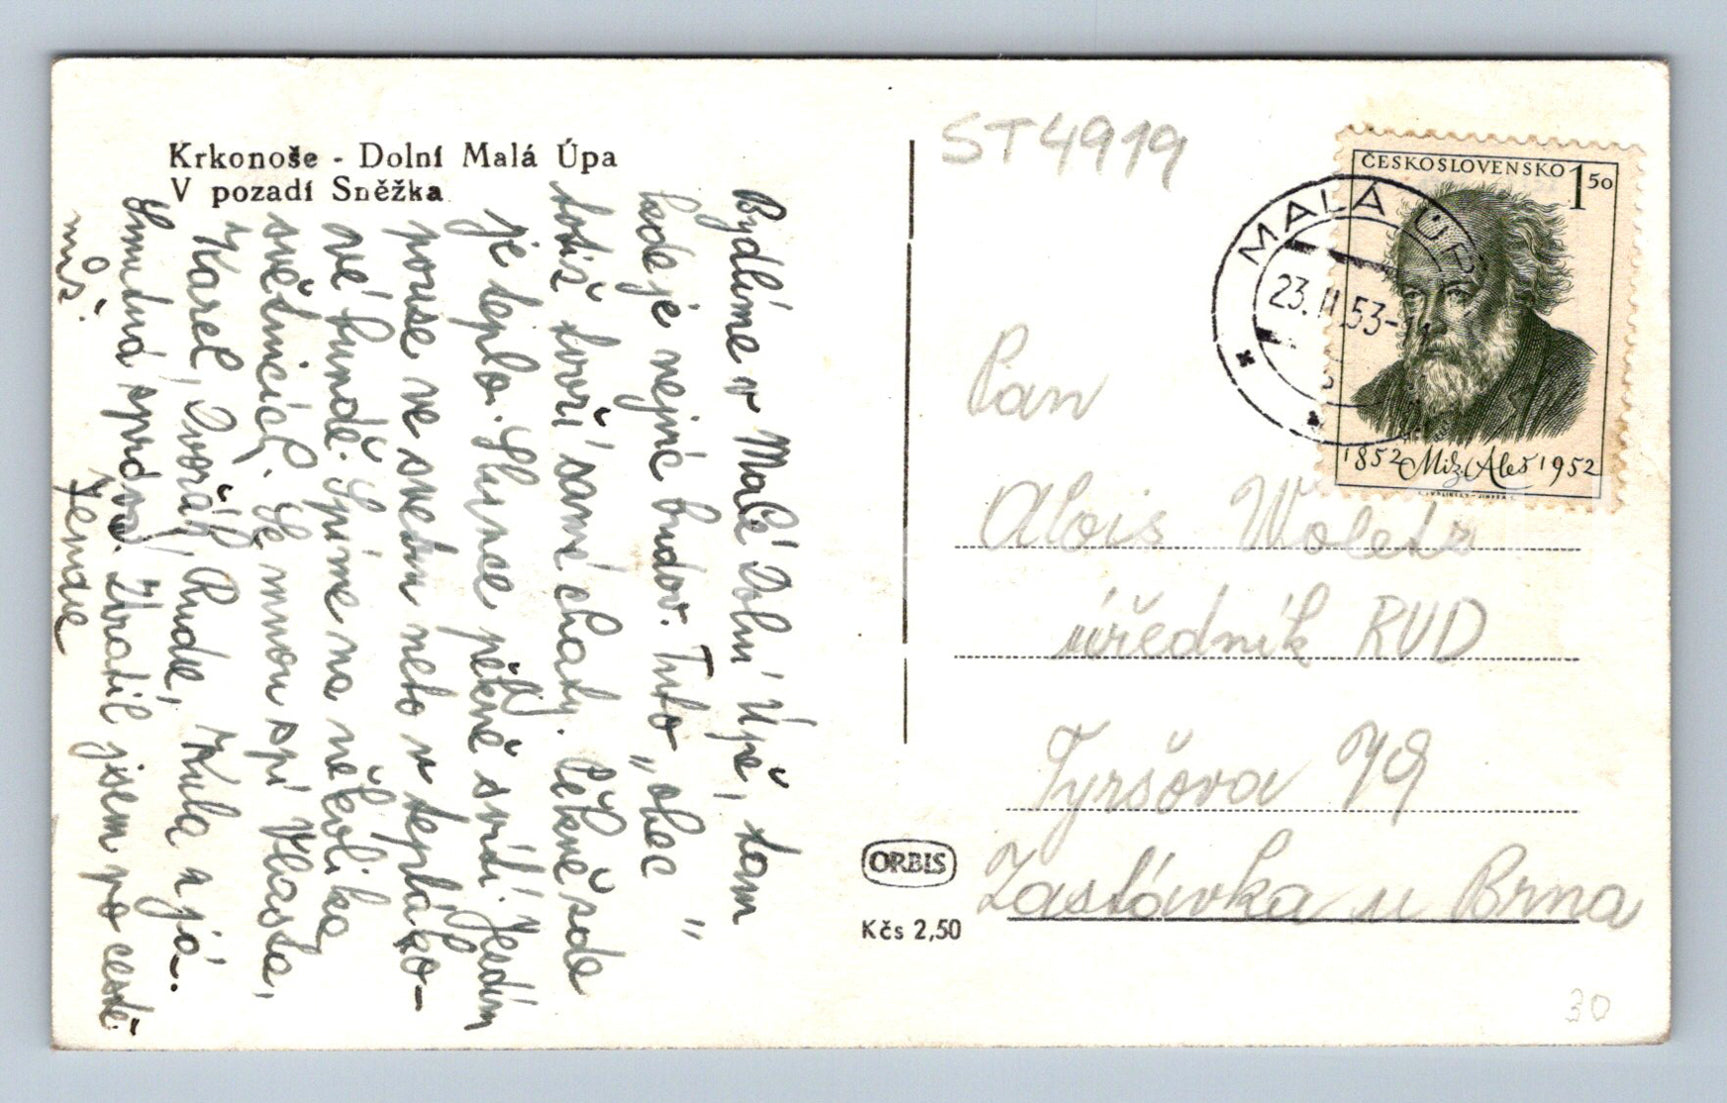 Krkonoše - Dolní Malá Úpa
V pozadí Sněžka
Bydlíme v Malé Dolní Úpě, tam
kde je nejvíc budov. Tuto „obec"
totiž tvoří samé chaty. Čekně zde
je teplo. Slunce pěkně svítí. Jezdím
pouze ve svetru nebo v tepláko-
vé bundě. Spíme na několika
světnicích. Se mnou spí Vlasta,
Karel, Dvořák, Rudie, Kula a já.
Smutná zpráva. Ztratil jsem po cestě
nůž.
Jendie
ST4919
ČESKOSLOVENSKO 1 50
1852 Mik. Aleš 1952
MALÁ ÚPA
23.II.53-
Pan
Alois Woletz
úředník RUD
Tyršova 79
Zastávka u Brna
ORBIS
Kčs 2,50
30